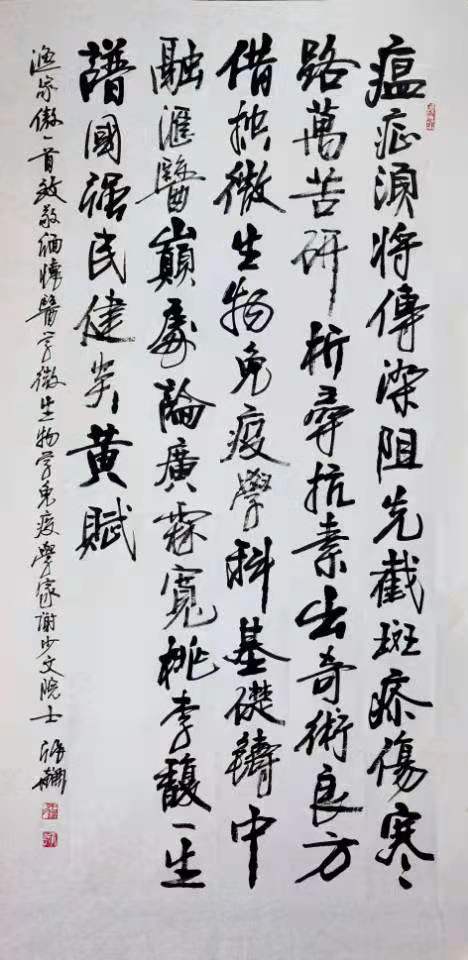 瘟症須將傳染阻先截斑疹傷寒
路萬苦研析尋抗素出奇術良方
借微生物免疫學科基礎鑄中
融滙醫巔處論廣霖寬桃李馥一生
譜國强民健炎黃賦
漁家傲一首致敬緬懷醫学微生物学免疫學家謝少文院士